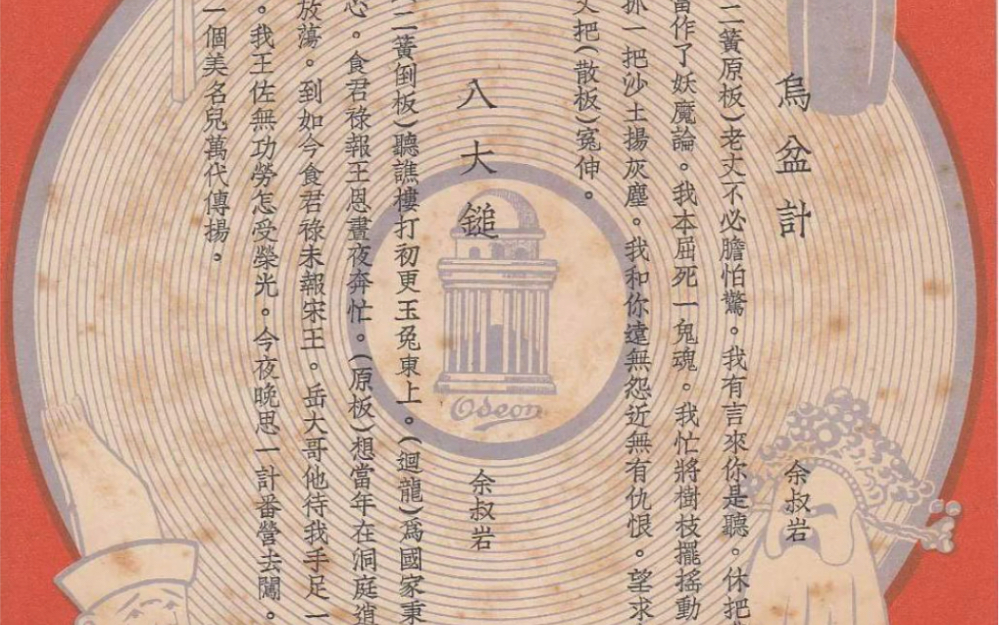 烏盆計 余叔岩
二簧原板)老丈不必膽怕驚。我有言來你是聽。休把
當作了妖魔論。我本屈死一鬼魂。我忙將樹枝擺搖動
抓一把沙土揚灰塵。我和你遠無怨近無有仇恨。望求
丈把(散板)寃伸。
八大鎚 余叔岩
二簧倒板)聽譙樓打初更玉兔東上。(迴龍)爲國家秉
心。食君祿報王恩晝夜奔忙。(原板)想當年在洞庭逍
放蕩。到如今食君祿未報宋王。岳大哥他待我手足一
。我王佐無功勞怎受榮光。今夜晚思一計番營去闖。
一個美名兒萬代傳揚。
Odeon